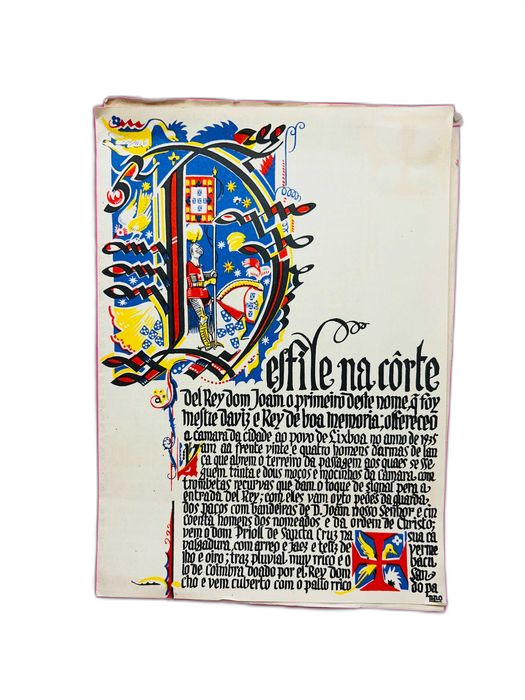 Desfile na côrte
del Rey dom Joam o primeiro deste nome, q̃ foy
mestre daviz e Rey de boa memoria; offereceo
a camara da cidade ao povo de Lixboa no anno de 1935
Vam aa frente vinte e quatro homens d'armas de lan
ça que abrem o terreiro da passagem aos quaes se se
guem trinta e dous moços e mocinhos da camara, com
trombetas recurvas que dam o toque de signal pera a
entrada del Rey; com elles vam oyto peões da guarda
dos paços com bandeiras de D. Joam nosso Senhor e cin
coenta homens dos nomeados e da ordem de Christo;
vem o dom Prioll de Sancta Cruz na sua ca
valgadura, com arreo e jaez e telis de verme
lho e oiro; traz pluvial muy rrico e o bacu
lo de Coimbra doado por el Rey dom San
cho e vem cuberto com o pallo rrico do pa